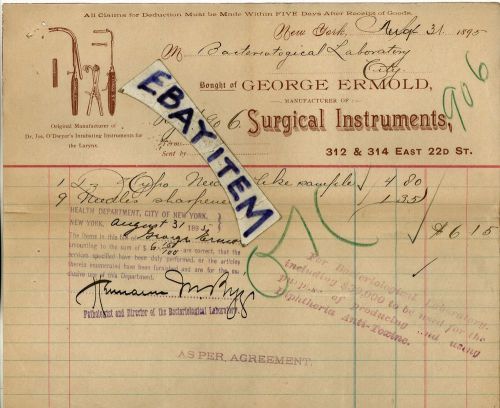 All Claims for Deduction Must be Made Within FIVE Days After Receipt of Goods.
New York, 31 1895
M Bacteriological Laboratory
City
Bought of GEORGE ERMOLD,
MANUFACTURER OF
Surgical Instruments,
312 & 314 East 22d St.
Original Manufacturer of
Dr. Jos. O'Dwyer's Intubating Instruments for
the Larynx.
906.
Sent by
906
EBAY ITEM
1 Dz Hypo Needles like sample 4 80
9 Needles sharpened 1 35
$6 15
HEALTH DEPARTMENT, CITY OF NEW YORK.
NEW YORK, August 31 1895
The items in this bill of George Ermold
amounting to the sum of $ 6 15/100 are correct, that the
services specified have been duly performed, or the articles
therein enumerated have been furnished, and are for the
use of this Department.
Hermann M Biggs
Pathologist and Director of the Bacteriological Laboratory.
For Bacteriological Laboratory,
including $30,000 to be used for the
purpose of producing and using
Diphtheria Anti-Toxine.
AS PER. AGREEMENT.